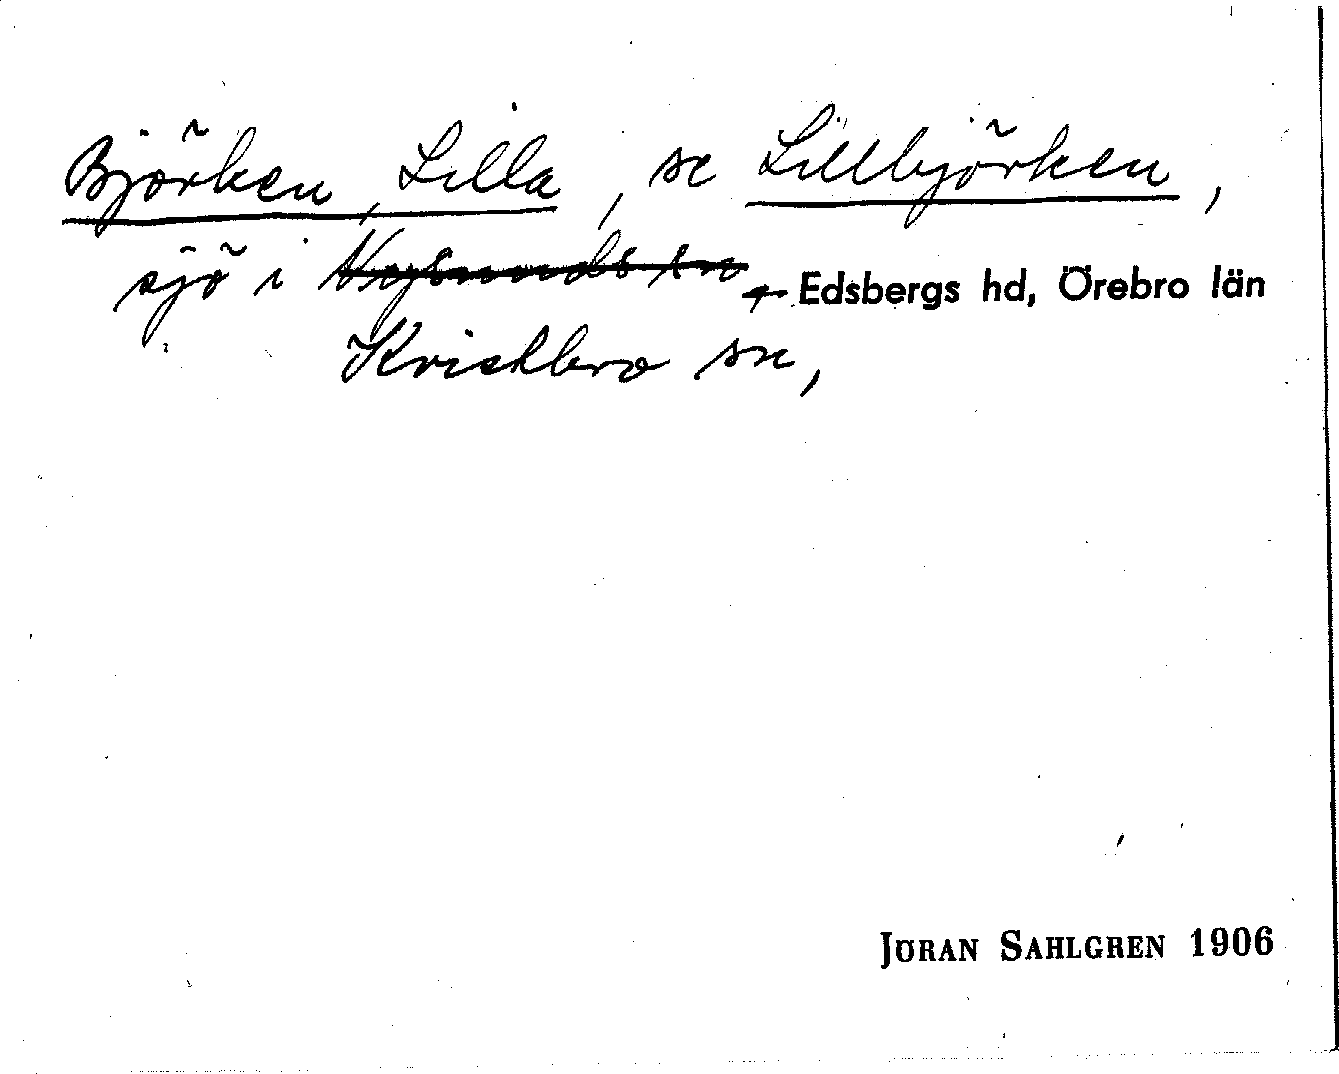 Björken, Lilla, se Lillbjörken,
sjö i Edsbergs hd, Örebro län
Kvistbro sn,
JÖRAN SAHLGREN 1906